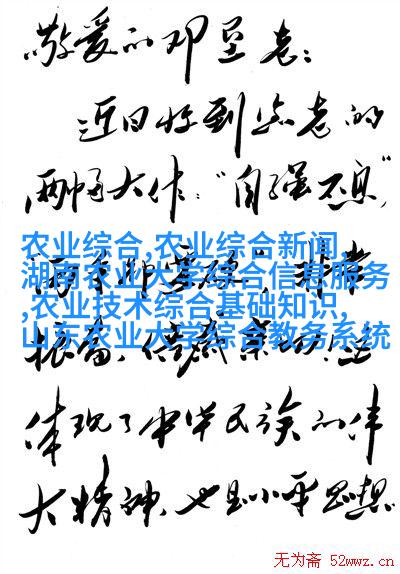 敬爱的邓垦老:
近日收到您老的
两幅大作:“自强不息”
农业综合,农业综合新闻,
湖南农业大学综合信息服务
,农业技术综合基础知识,
山东农业大学综合教务系统
非常
振奋、倍感亲切!它
体现了中华民族的伟
大精神,也是小平思想
无为斋 52wwz.cn